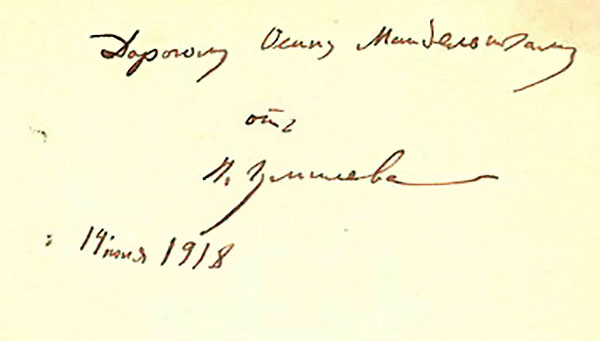 Дорогому Осипу Мандельштаму
отъ
Н. Гумилева
14 1918